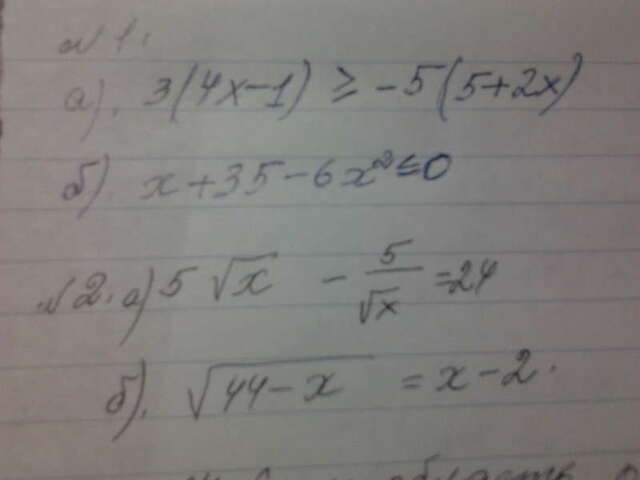 №1.
а). 3(4x-1) ≥ -5(5+2x)
б) x+35-6x² ≤ 0
№2. а) 5√x - 5/√x = 24
б). √(44-x) = x-2.
область